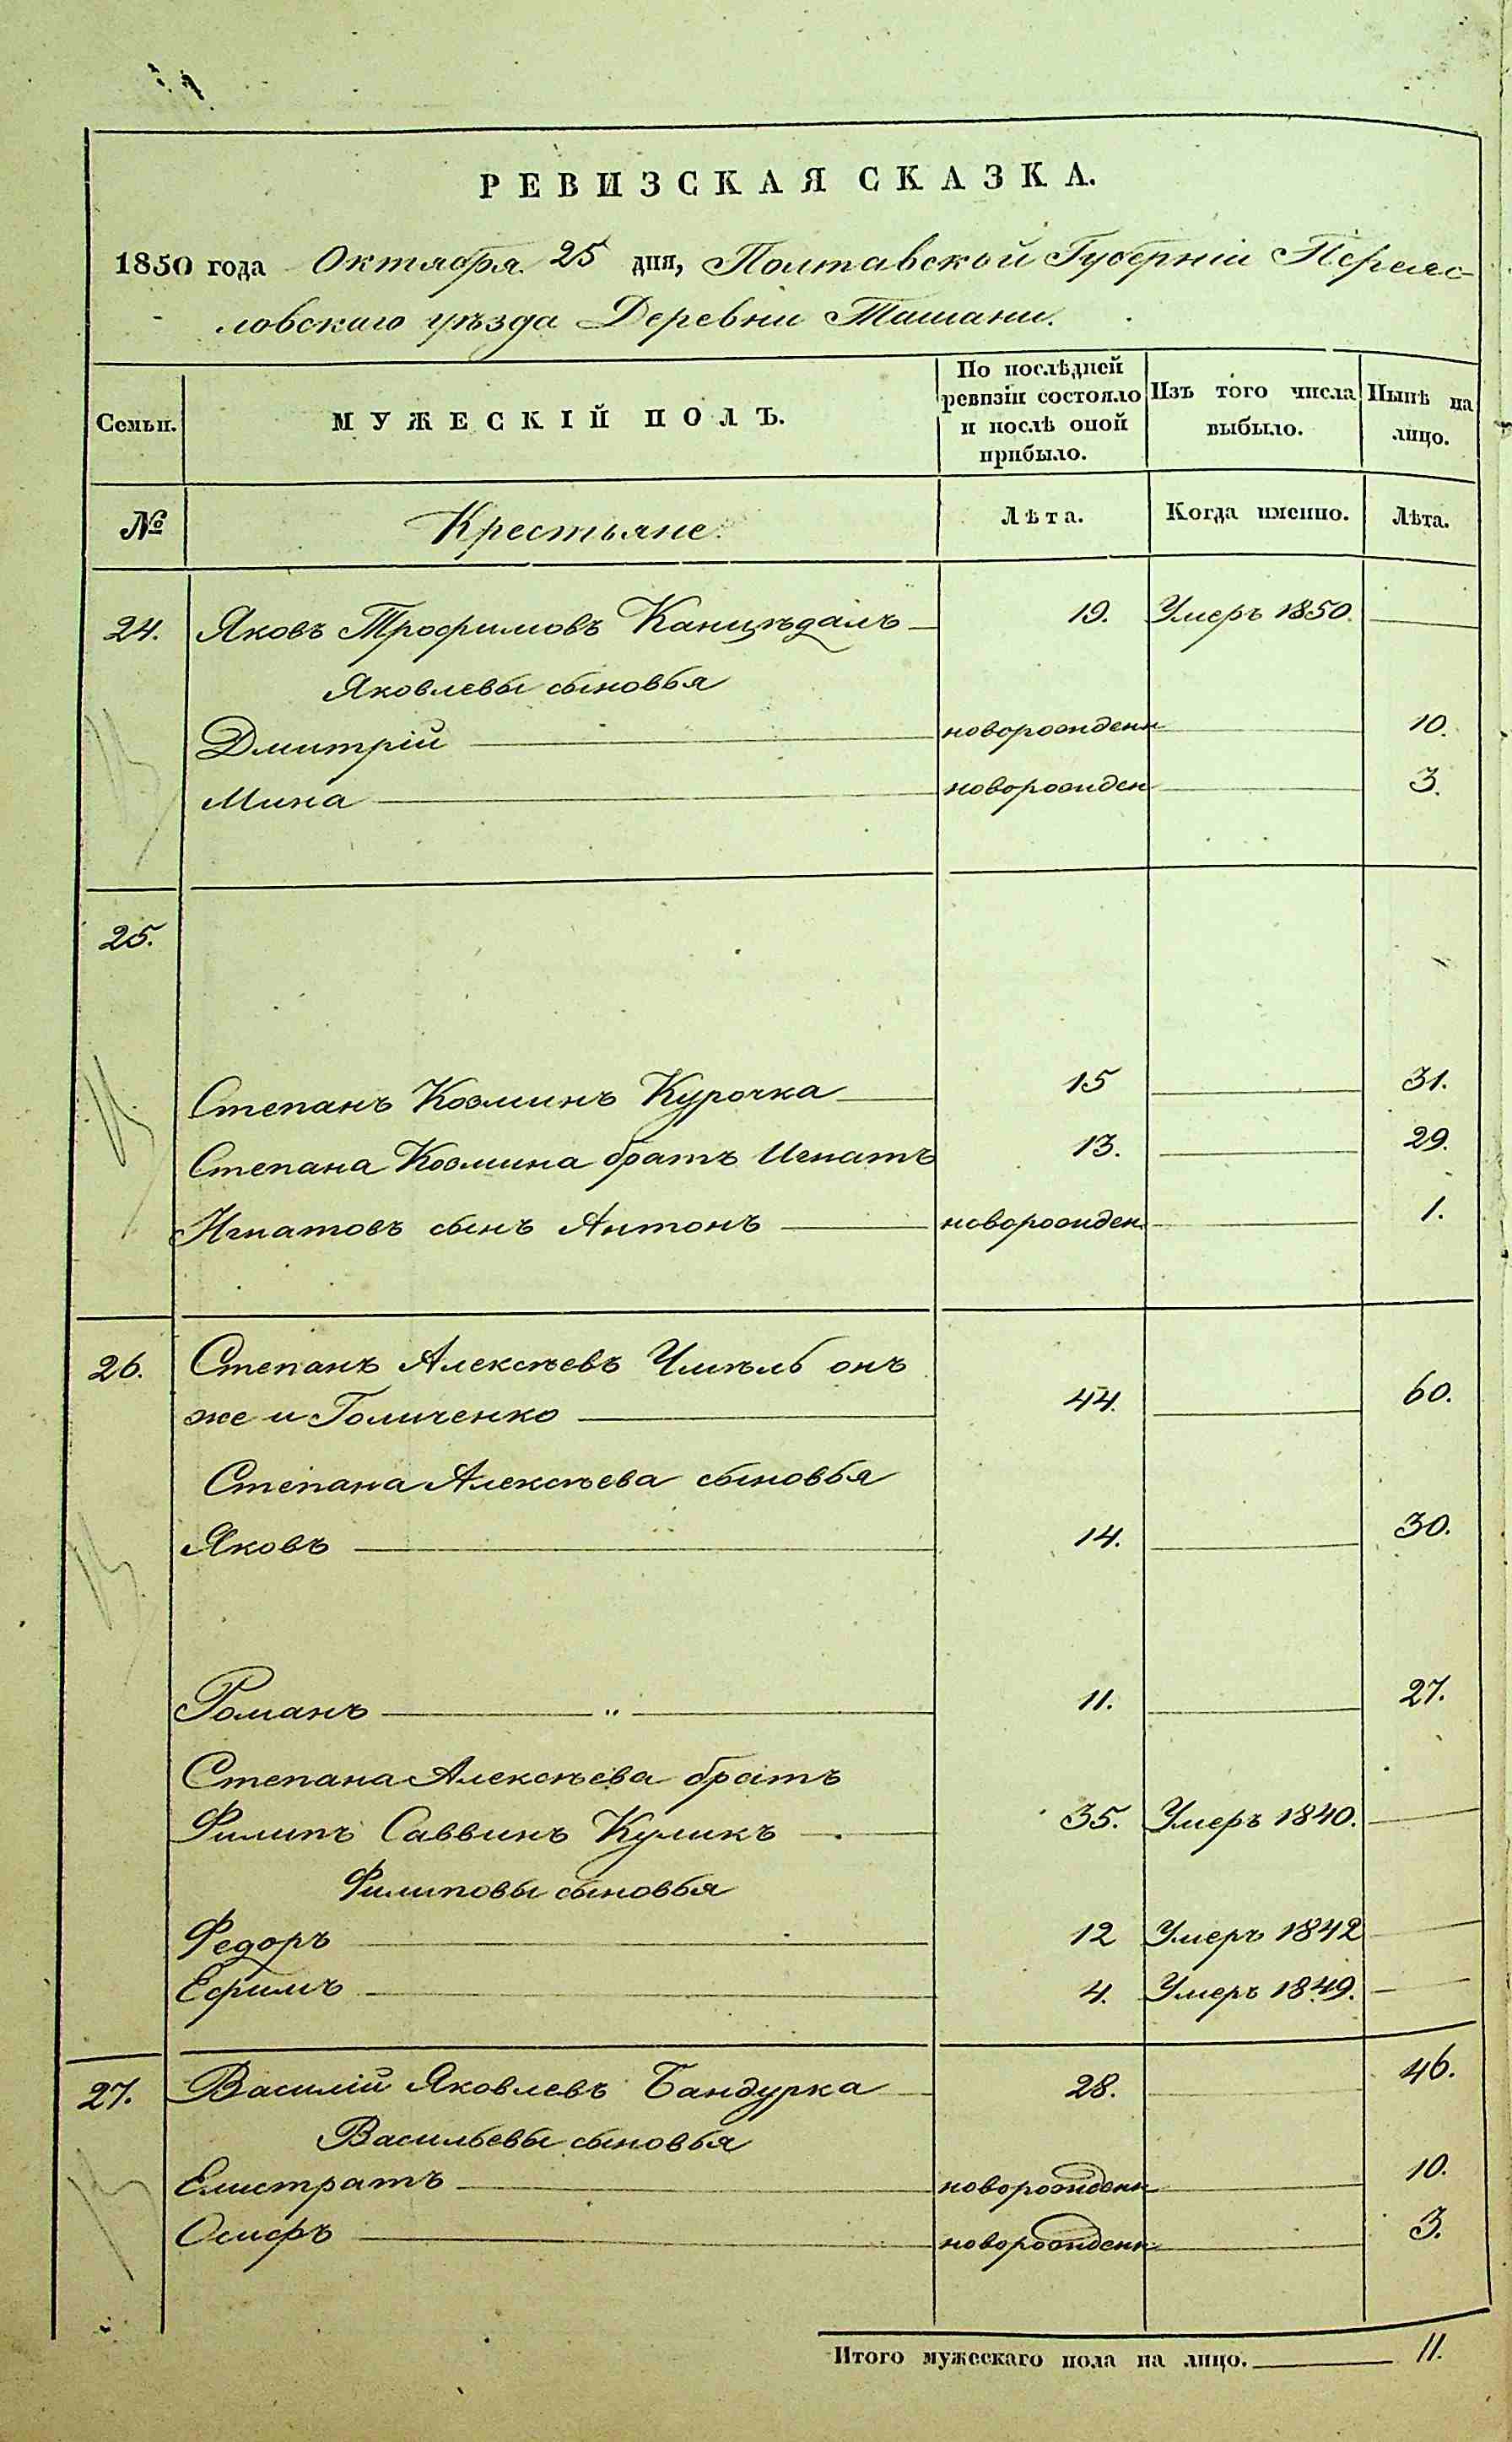 РЕВИЗСКАЯ СКАЗКА.
1850 года Октября 25 дня, Полтавской Губерніи Переяс-
ловскаго уѣзда Деревни Ташани.
Семьи. МУЖЕСКІЙ ПОЛЪ. По послѣдней ревизіи состояло и послѣ оной прибыло. Изъ того числа выбыло. Нынѣ на лицо.
№ Крестьяне. Лѣта. Когда именно. Лѣта.
24. Яковъ Трофимовъ Канцѣдалъ 19. Умеръ 1850.
Яковлевы сыновья
Дмитрій новорожденн 10.
Мина новорожден 3.
25.
Степанъ Козминъ Курочка 15 31.
Степана Козмина братъ Игнатъ 13. 29.
Игнатовъ сынъ Антонъ новорожден 1.
26. Степанъ Алексѣевъ Чмѣль онъ
же и Голиченко 44. 60.
Степана Алексѣева сыновья
Яковъ 14. 30.
Романъ „ 11. 27.
Степана Алексѣева братъ
Филипъ Саввинъ Куликъ 35. Умеръ 1840.
Филиповы сыновья
Федоръ 12 Умеръ 1842
Ефимъ 4. Умеръ 1849.
27. Василій Яковлевъ Бандурка 28. 46.
Васильевы сыновья
Елистратъ новорожденн 10.
Осифъ новорожденн 3.
Итого мужескаго пола на лицо. 11.